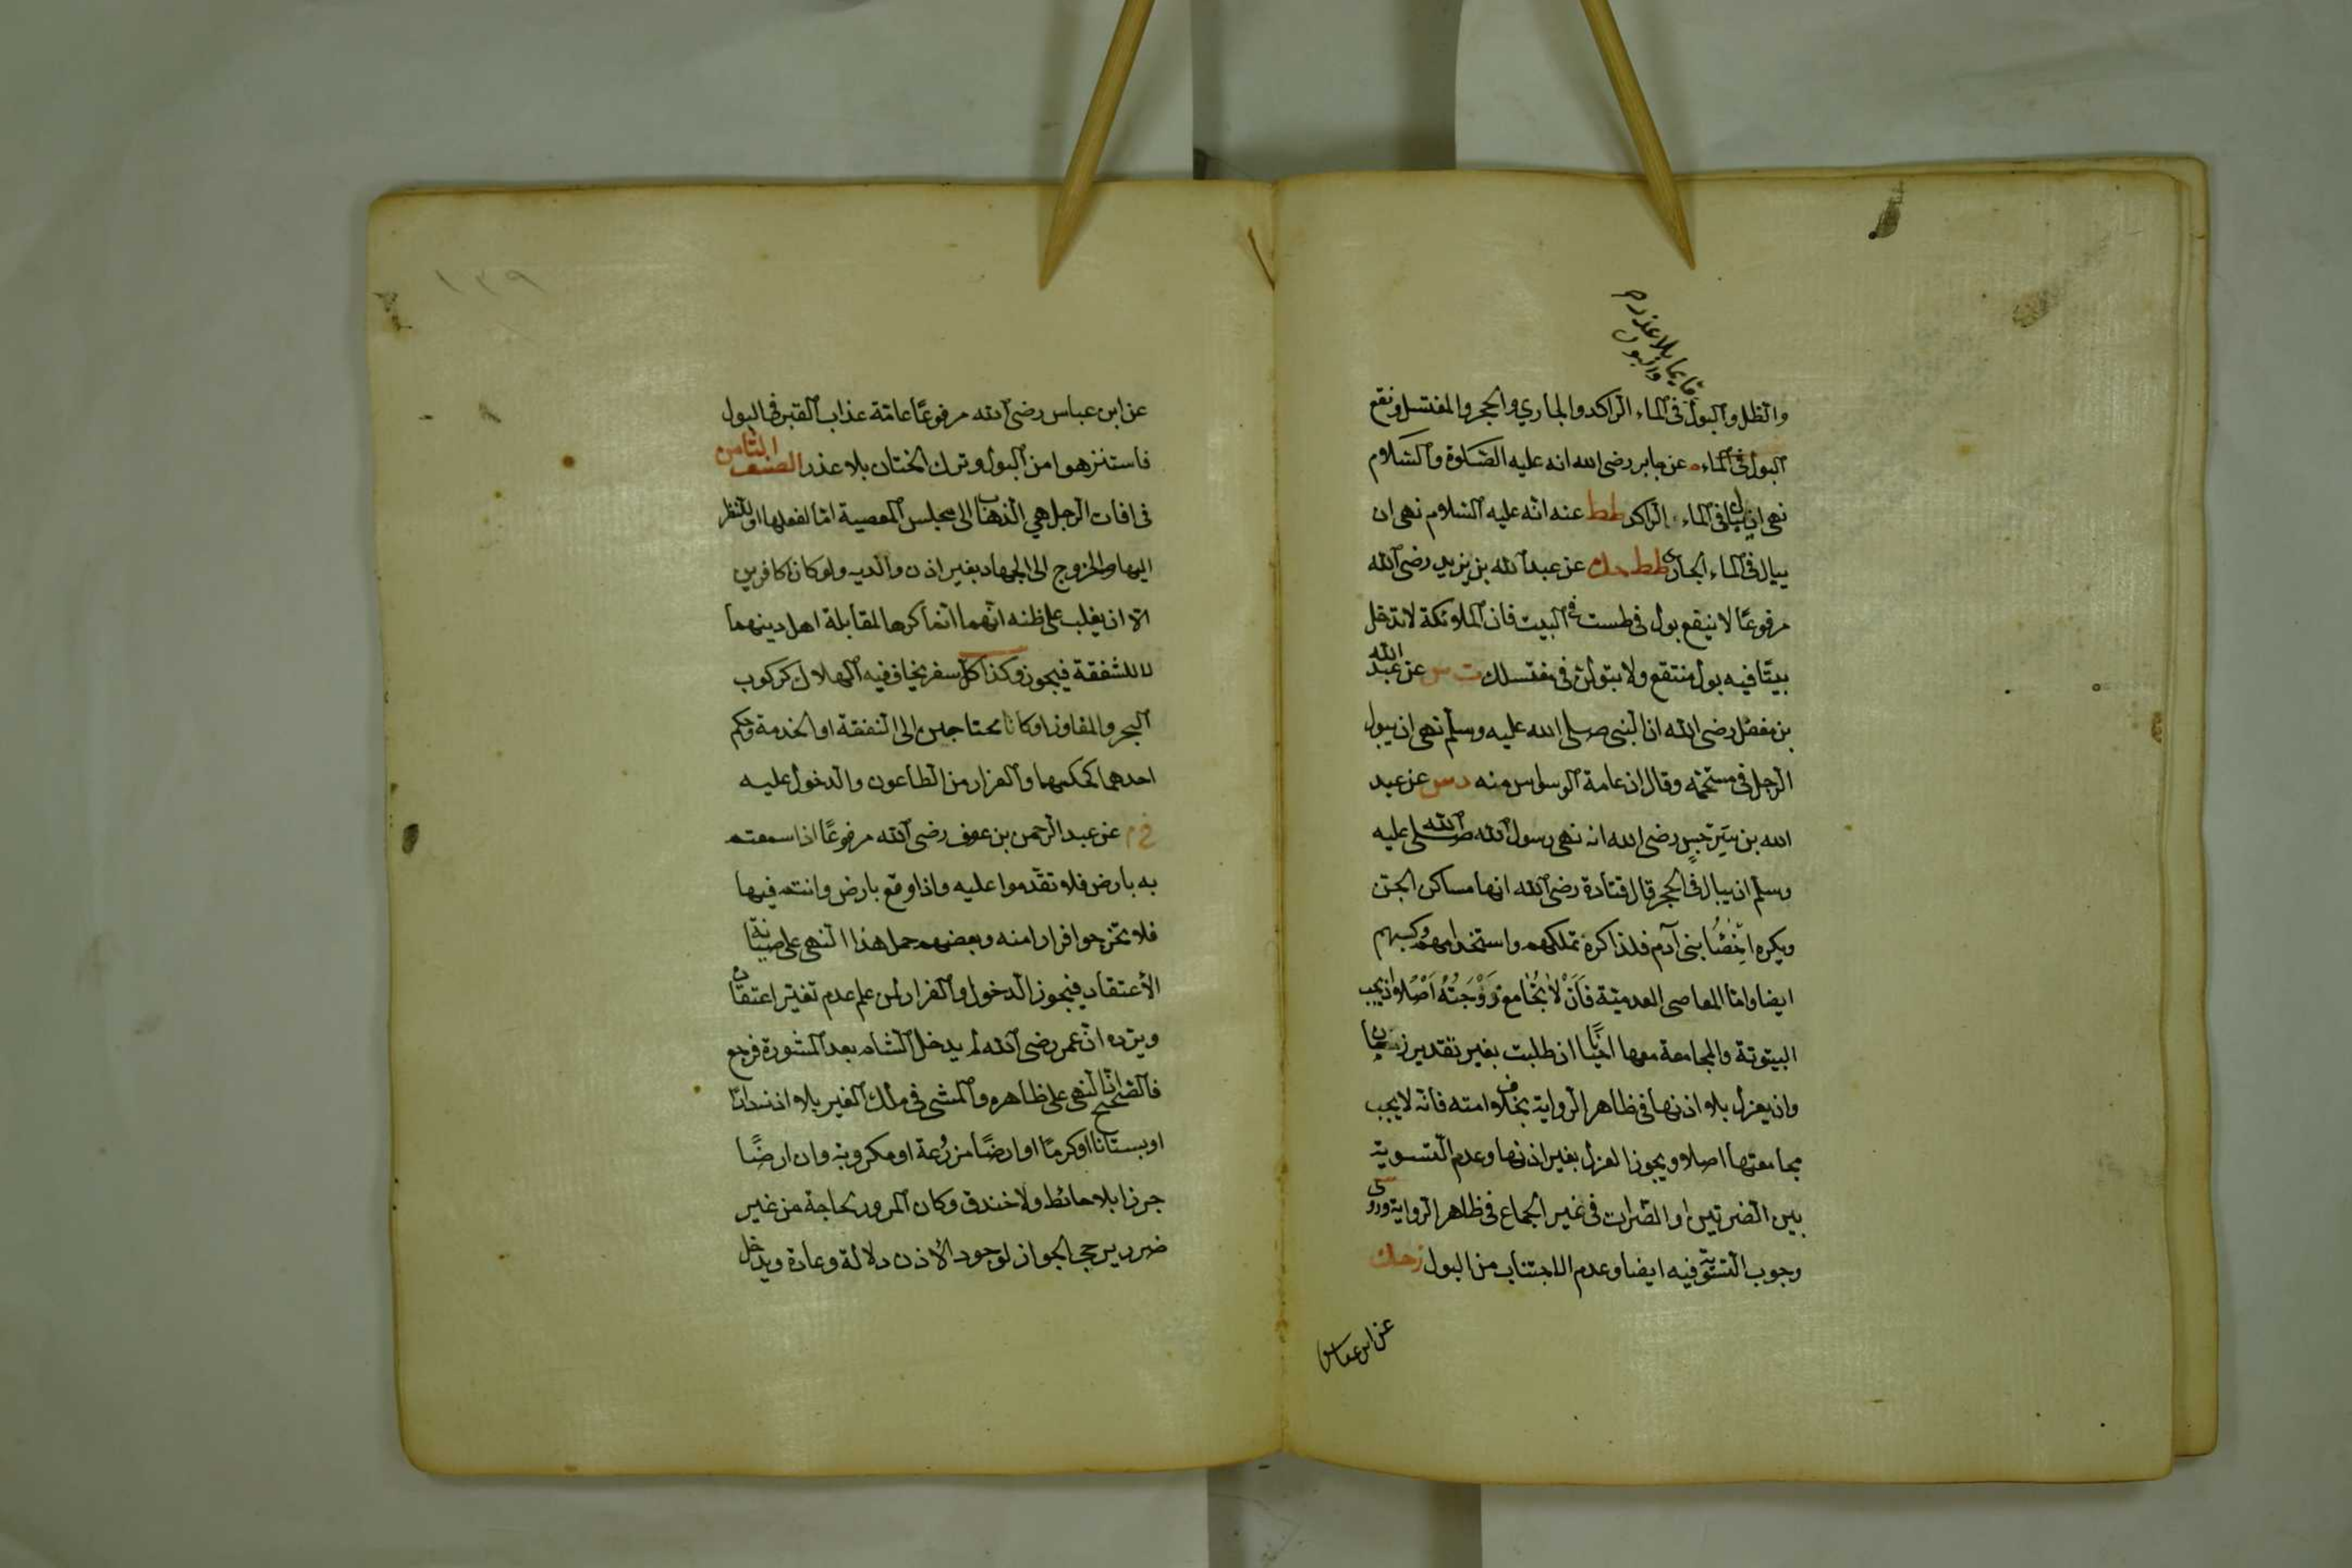 قايما بلا عذر م
والبول
والظل والبول فى الماء الراكد والجاري والحجر والمغتسل ونقع
البول فى الماء م عن جابر رضى الله انه عليه الصلاة والسلام
نهى ان يبال فى الماء الراكد طط عنه انه عليه السلام نهى ان
يبال فى الماء الجارى طط حك عن عبد الله بن يزيد رضى الله
مرفوعًا لا ينقع بول فى طست فى البيت فان الملائكة لا تدخل
بيتًا فيه بول منتقع ولا تبولن فى مغتسلك ت س عن عبد الله
بن مغفل رضى الله ان النبى صلى الله عليه وسلم نهى ان يبول
الرجل فى مستحمه وقال ان عامة الوسواس منه د س عن عبد
الله بن سرجس رضى الله انه نهى رسول الله صلى الله عليه
وسلم ان يبال فى الجحر قال قتادة رضى الله انها مساكن الجن
ويكره اخصاء بنى آدم فلذا كره تملكهم واستخدامهم وكسبهم
ايضا واما المعاصى العدمية فان لا يجامع زوجته اصلا واذ يجب
البيتوتة والمجامعة معها احيانا ان طلبت بغير تقدير زمان
وان يعزل بلا اذنها فى ظاهر الرواية بخلاف امته فانه لا يجب
مجامعتها اصلا ويجوز العزل بغير اذنها وعدم التسوية
بين الضرتين او الضرات فى غير الجماع فى ظاهر الرواية وروى
وجوب التسوية فيه ايضا وعدم الاجتناب من البول ز حك
عن ابن عباس
١٣٩
عن ابن عباس رضى الله مرفوعًا عامة عذاب القبر فى البول
فاستنزهوا من البول وترك الختان بلا عذر الصنف الثامن
فى افات الرجل هي الذهاب الى مجلس المعصية اما لفعلها او للنظر
اليها والخروج الى الجهاد بغير اذن والديه ولو كانا كافرين
الا ان يغلب على ظنه انهما انما كرها لمقابلة اهل دينهما
لا للشفقة فيجوز وكذا كل سفر يخاف فيه الهلاك كركوب
البحر والمفاوز او كانا محتاجين الى النفقة او الخدمة وحكم
احدهما كحكمهما والفرار من الطاعون والدخول عليه
خ م عن عبد الرحمن بن عوف رضى الله مرفوعًا اذا سمعتم
به بارض فلا تقدموا عليه واذا وقع بارض وانتم فيها
فلا تخرجوا فرارا منه وبعضهم حمل هذا النهى على صيانة
الأعتقاد فيجوز الدخول والفرار لمن علم عدم تغير اعتقاده
ويرده ان عمر رضى الله لم يدخل الشام بعد المشورة فرجع
فالصحيح ان النهى على ظاهره والمشى فى ملك الغير بلا اذنه دارًا
او بستانا او كرمًا او ارضًا مزرعة او مكروبة وان ارضًا
جرزا بلا حائط ولا خندق وكان المرور لحاجة من غير
ضرر يرجى الجواز لوجود الأذن دلالة وعادة ويدخل